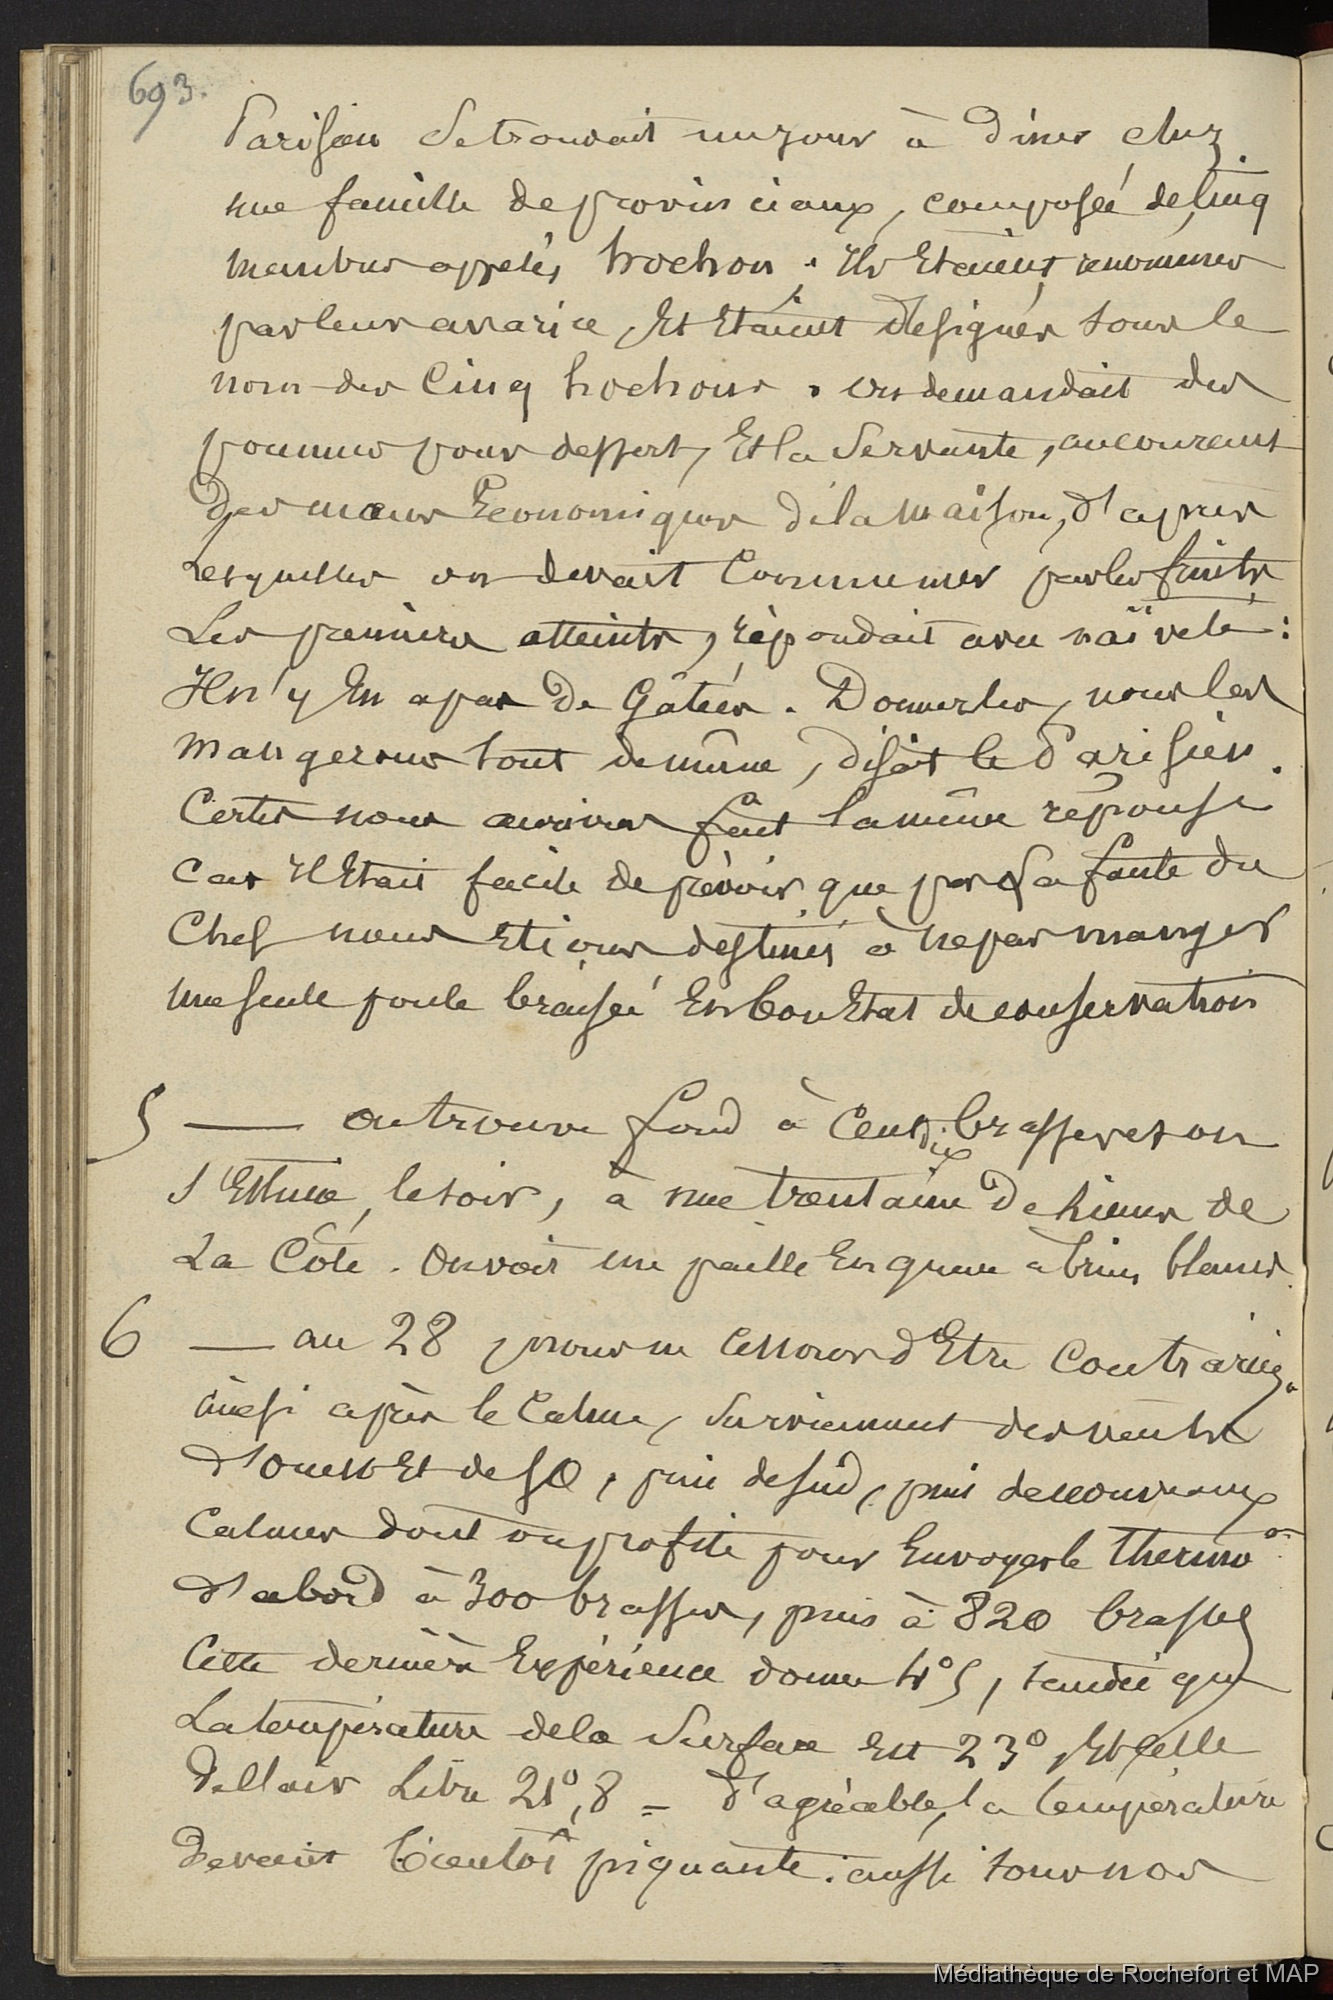 693.
Parisien se trouvait un jour à diner chez
une famille de provinciaux, composée de cinq
membres appelés hochon. Ils Etaient renommés
par leur avarice, Et Etaient désignés sous le
nom des Cinq hochons. On demandait des
pommes pour dessert, Et la Servante, au courant
des mœurs Economiques de la maison, d'après
lesquelles on devait Commencer par les fruits
Les premiers atteints, répondait avec naïveté :
Il n'y En a pas de Gâtées. Donnez les, nous les
mangerons tout de même, disait le Parisien.
Certes nous aurions fait la même réponse
Car il Etait facile de prévoir que par la faute du
Chef nous Etions destinés à ne pas manger
une seule poule braisée En bon Etat de conservation
5 — on trouve fond à Cent dix brasses et on
s'Estime, le soir, à une trentaine de lieues de
La Côte. On voit une paille En queue à brins blancs.
6 — au 28, nous ne cessons d'Etre Contrariés.
ainsi après le Calme, surviennent des vents
d'ouest Et de SO, puis de sud, puis de nouveaux
Calmes dont on profite pour Envoyer le thermo on
d'abord à 300 brasses, puis à 820 brasses
Cette dernière Expérience donne 4°5, tandis que
La température de la Surface Est 23°, Et celle
de l'air Libre 21°,8 = d'agréable, la température
devient bientôt piquante : aussi tous nos
Médiathèque de Rochefort et MAP